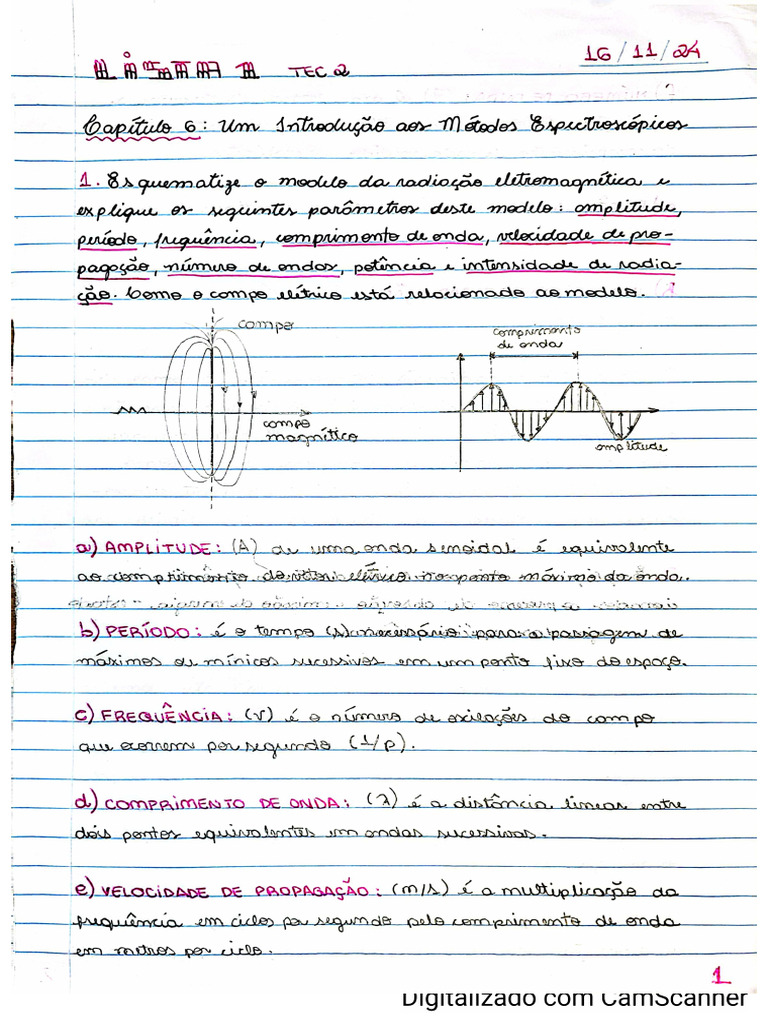 TEC 2
16/11/24
Capítulo 6: Um Introdução aos Métodos Espectroscópicos
1. Esquematize o modelo da radiação eletromagnética e
explique os seguintes parâmetros deste modelo: amplitude,
período, frequência, comprimento de onda, velocidade de pro-
pagação, número de ondas, potência e intensidade de radia-
ção. Como o campo elétrico está relacionado ao modelo.
campo
campo
magnético
comprimento
de onda
amplitude
a) AMPLITUDE: (A) de uma onda senoidal é equivalente
ao comprimento do vetor elétrico no ponto máximo da onda.
b) PERÍODO: é o tempo (s) necessário para a passagem de
máximos ou mínicos sucessivos em um ponto fixo do espaço.
c) FREQUÊNCIA: (v) é o número de oscilações do campo
que ocorrem por segundo (1/p).
d) COMPRIMENTO DE ONDA: (λ) é a distância linear entre
dois pontos equivalentes em ondas sucessivas.
e) VELOCIDADE DE PROPAGAÇÃO: (m/s) é a multiplicação da
frequência em ciclos por segundo pelo comprimento de onda
em metros por ciclo.
1
Digitalizado com CamScanner